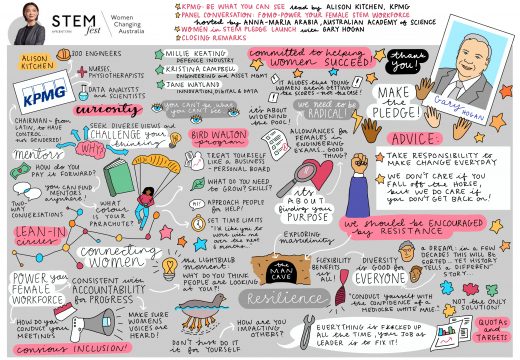 STEM
fest
Women
Changing
Australia
KPMG: BE WHAT YOU CAN SEE read by ALISON KITCHEN, KPMG
PANEL CONVERSATION: FOMO-POWER YOUR FEMALE STEM WORKFORCE
hosted by ANNA-MARIA ARABIA, AUSTRALIAN ACADEMY of SCIENCE
WOMEN in STEM PLEDGE LAUNCH with GARY HOGAN
CLOSING REMARKS
ALISON
KITCHEN
300 ENGINEERS
NURSES,
PHYSIOTHERAPISTS
DATA ANALYSTS
and SCIENTISTS
KPMG
curiosity
CHAIRMAN - FROM
LATIN, TO HAVE
CONTROL
NOT GENDERED!
SEEK DIVERSE VIEWS and
CHALLENGE YOUR
thinking
WHY?
mentors
HOW DO YOU
PAY IS FORWARD?
YOU CAN FIND
MENTORS
ANYWHERE!
TWO-
WAY
CONVERSATIONS
WHAT
COLOUR is
YOUR
PARACHUTE?
LEAN-IN
circles
connecting
WOMEN
POWER YOUR
FEMALE
WORKFORCE
CONSISTENT with
ACCOUNTABILITY
for PROGRESS
HOW DO YOU
CONDUCT YOUR
MEETINGS
MAKE SURE
WOMENS
VOICES ARE
HEARD!
conscious INCLUSION!
MILLIE KEATING
DEFENCE INDUSTRY
KRISTINA CAMPBELL
ENGINEERING and ASSET MGMT
JANE WATLAND
INNOVATION, DIGITAL & DATA
YOU CAN'T BE WHAT
YOU CAN'T SEE
BIRD WALTON
program
TREAT YOURSELF
LIKE A BUSINESS
- PERSONAL BOARD
WHAT DO YOU NEED
TO GROW? SKILLS?
APPROACH PEOPLE
FOR HELP?
SET TIME LIMITS
the LIGHTBULB
MOMENT
WHY DO YOU THINK
PEOPLE ARE LOOKING
AT YOU?!
DON'T JUST DO IT
for YOURSELF
HOW ARE YOU
IMPACTING
OTHERS?
committed to helping
WOMEN SUCCEED!
IT'S ABOUT
WIDENING
THE POOL!
we need to be
RADICAL!
ALLOWANCES FOR
FEMALES in
ENGINEERING
EXAMS. GOOD
THING?
it's
ABOUT
having your
PURPOSE
EXPLORING
masculinity
the
MAN
CAVE
Resilience
FLEXIBILITY
BENEFITS
US all!
DIVERSITY
is GOOD for
EVERYONE
"CONDUCT YOURSELF WITH
THE CONFIDENCE OF A
MEDIOCRE WHITE MALE"
EVERYTHING IS F#CKED UP
ALL THE TIME, YOUR JOB AS
LEADER IS to FIX IT!
thank
you!
MAKE
the
PLEDGE!
Gary
HOGAN
ADVICE:
TAKE RESPONSIBILITY TO
MAKE CHANGE EVERYDAY
WE DON'T CARE IF YOU
FALL off the HORSE,
but WE DO CARE if
YOU DON'T GET BACK ON!
we should be ENCOURAGED
BY RESISTANCE
a DREAM: in a FEW
DECADES THIS WILL BE
SORTED - YET HISTORY
TELLS a DIFFERENT
STORY...
NOT the ONLY
SOLUTION!
QUOTAS
and
TARGETS